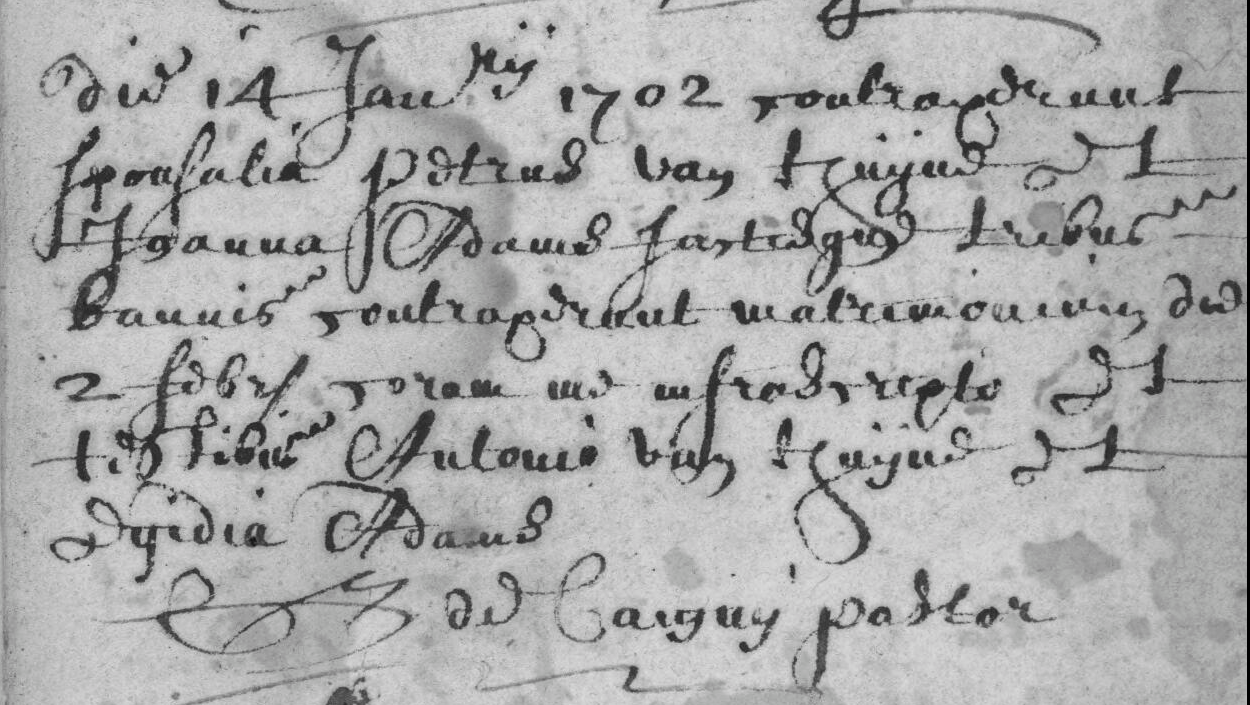 die 14 Jan[rij] 1702 contraxerunt
sponsalia Petrus van tzuijne et
Joanna Adams factisque tribus
bannis contraxerunt matrimonium die
2 febr coram me infrascripto et
testibus Antonio van tzuijne et
Egidia Adams
de Cargnij pastor